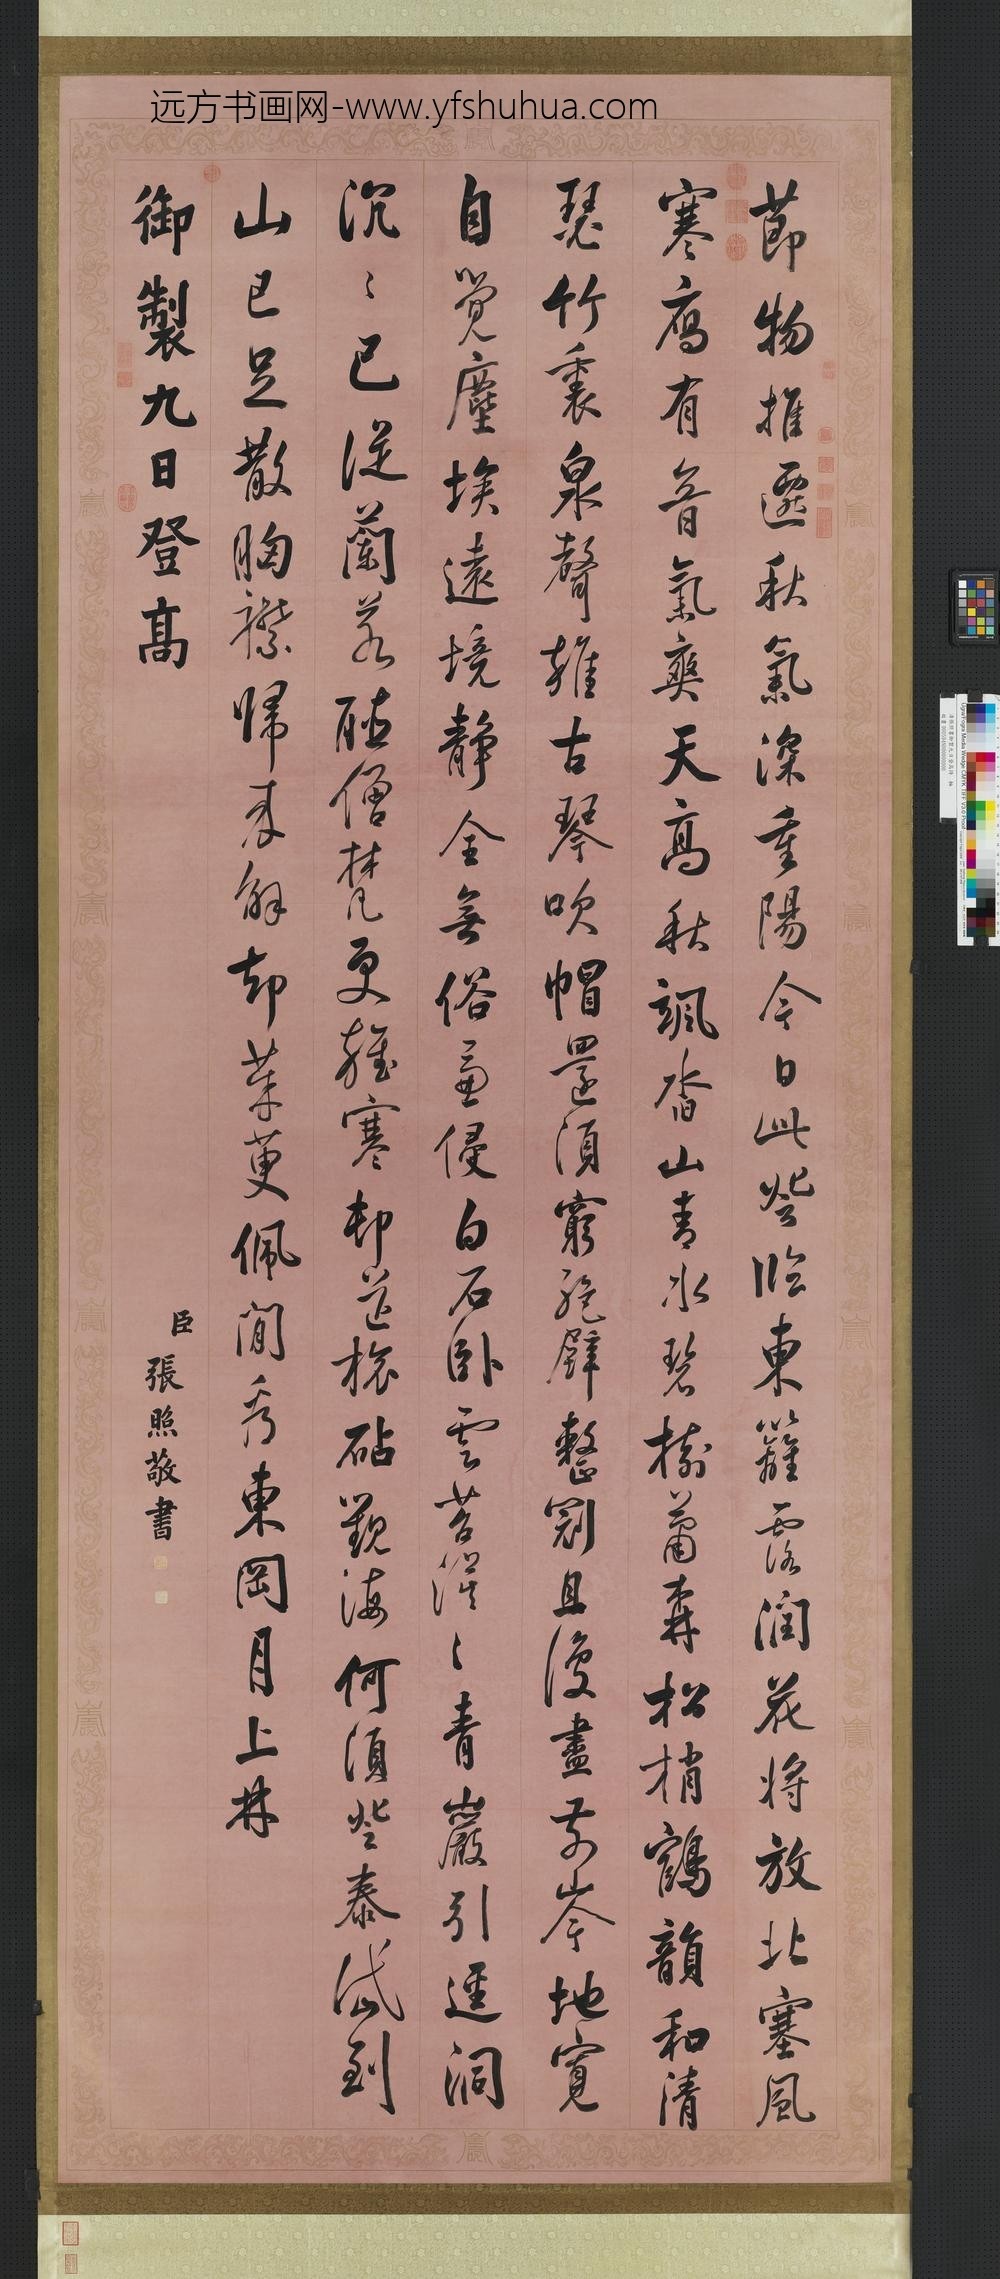 远方书画网-www.yfshuhua.com
莭物推遷秋氣深重陽今日此登臨東籬露潤花將放北塞風
寒鴈有音氣爽天高秋颯沓山青水碧樹蕭森松梢鶴韻和清
瑟竹裏泉聲雜古琴吹帽還須窮絕壁整冠且復盡前岑地寬
自覺塵埃遠境静全無俗慮侵白石卧雲苔漠〻青巖引逕洞
沉〻已從蘭若聽僧梵更雜寒邨遠砧觀海何須登泰岱到
山已足散胸襟歸來解却茱萸佩閒看東岡月上林
御製九日登高
臣張照敬書